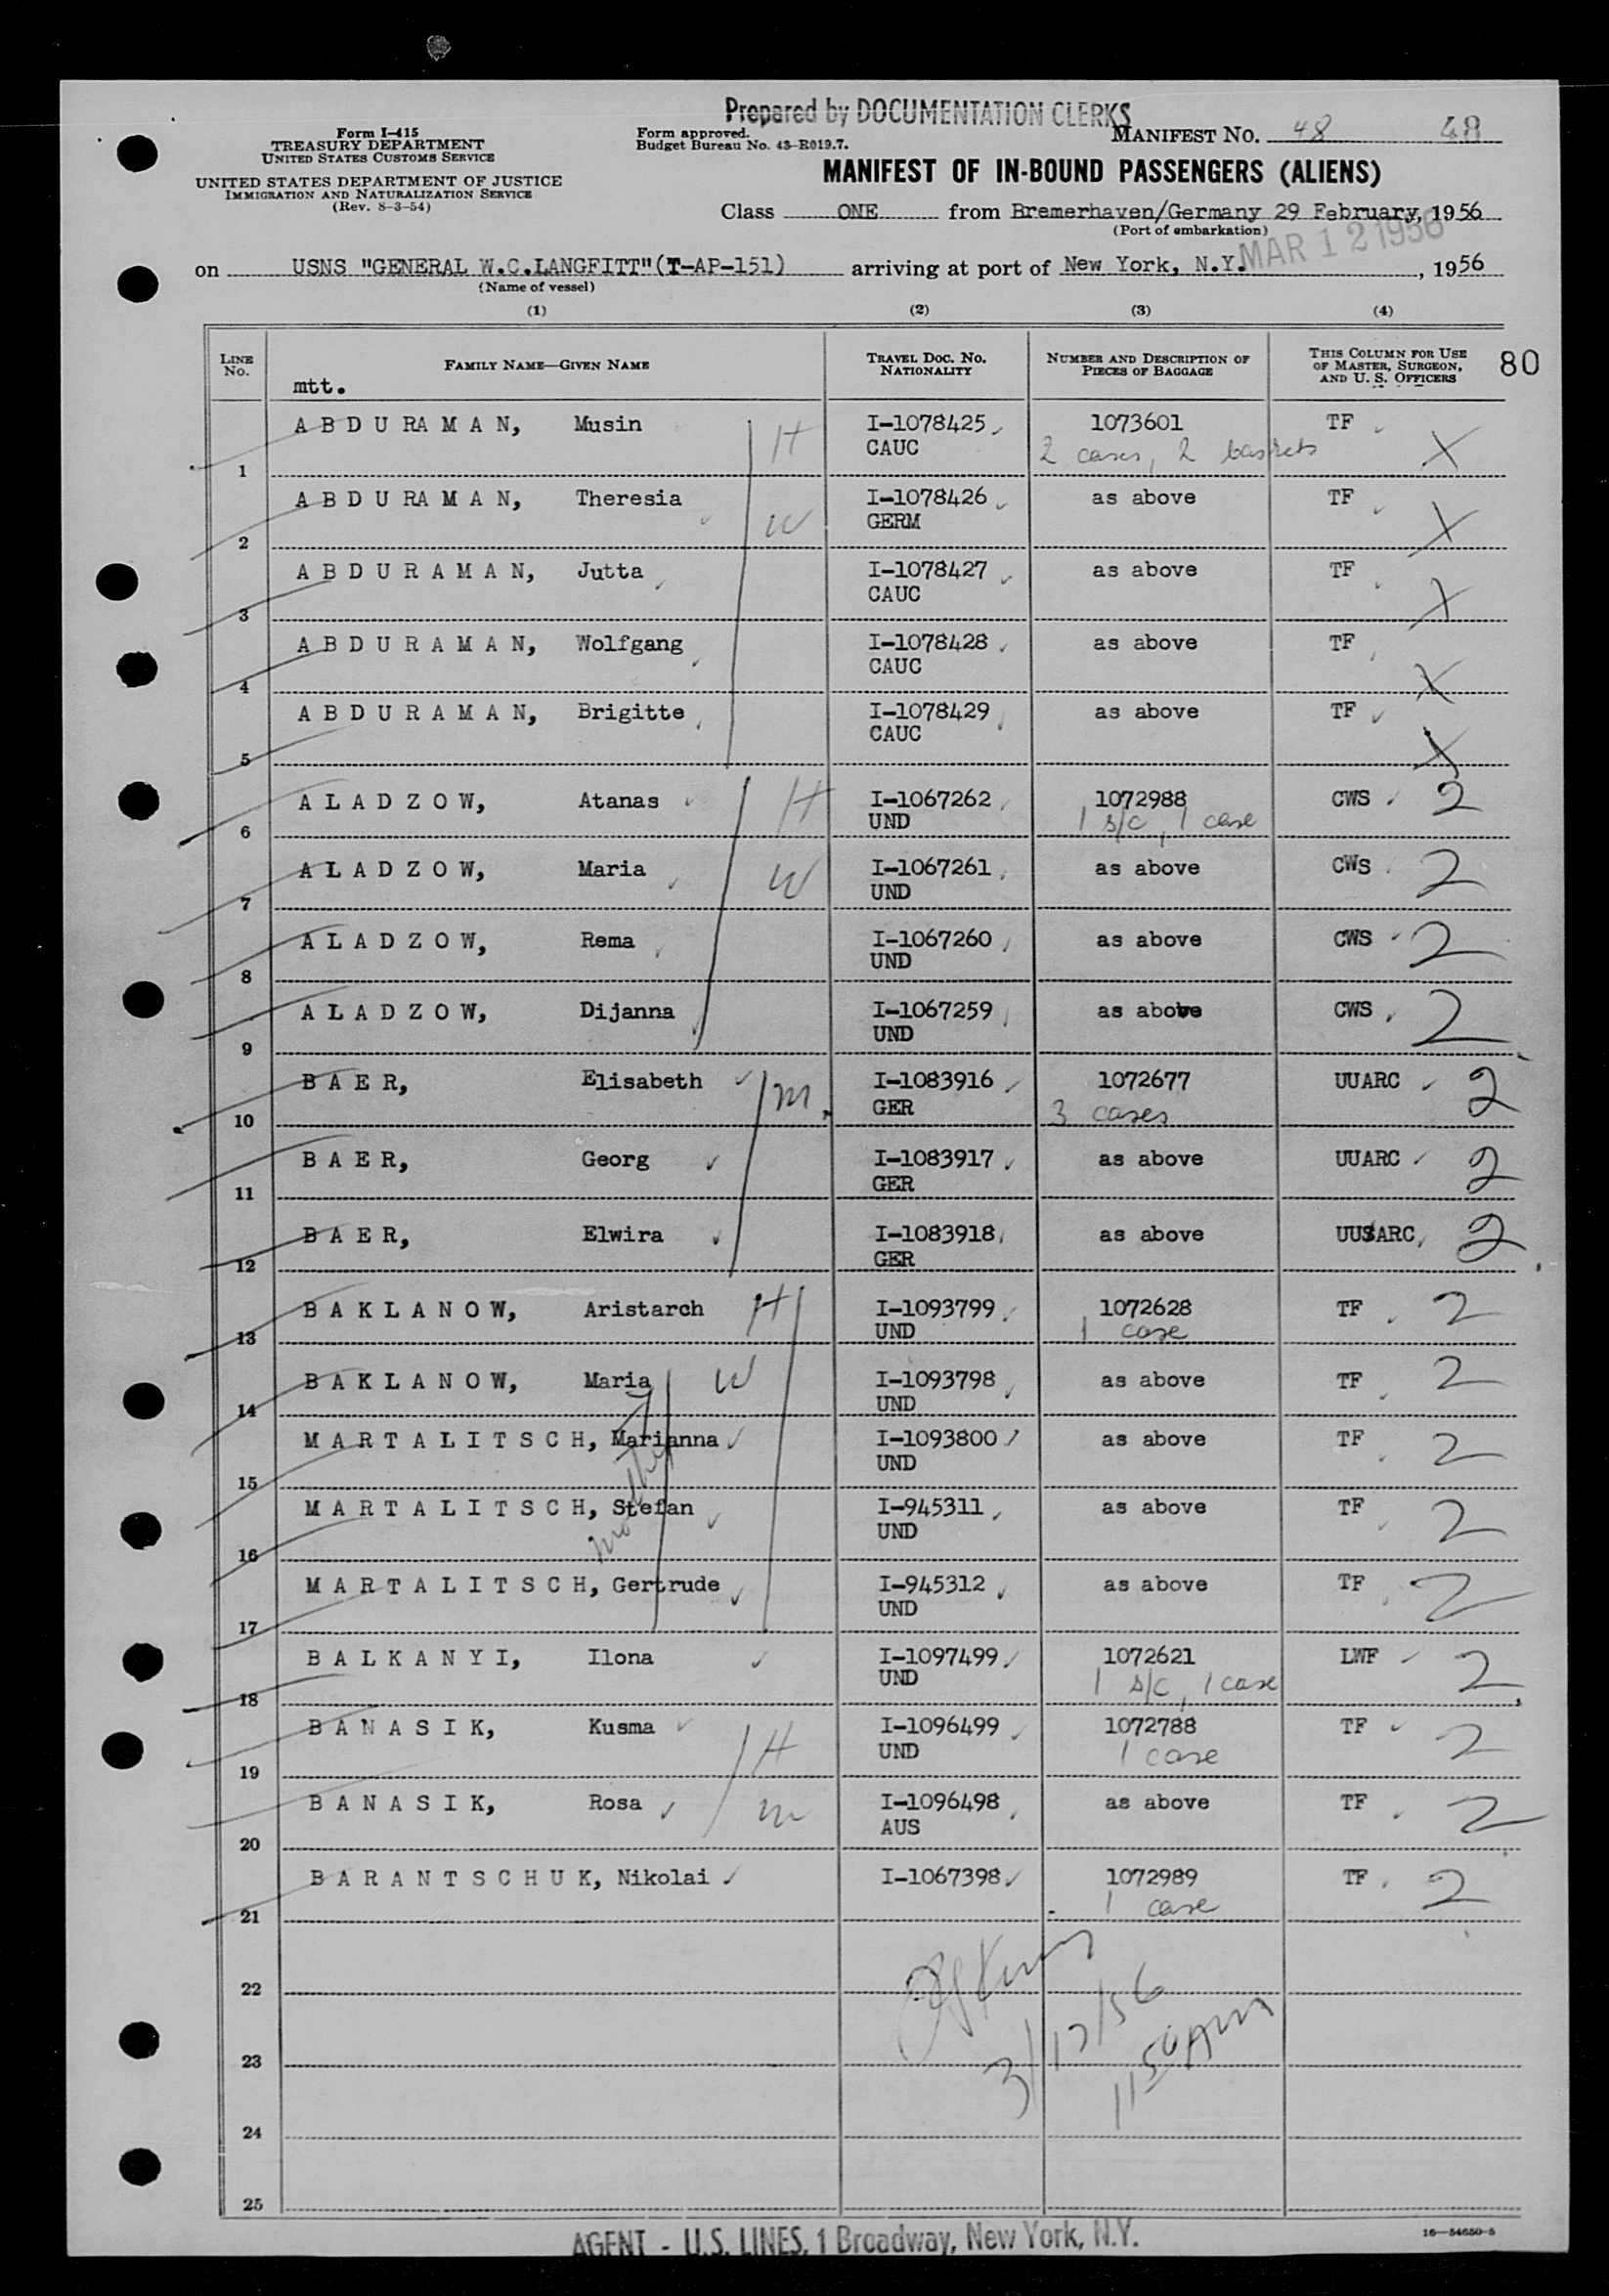 Prepared by DOCUMENTATION CLERKS
Form I-415
TREASURY DEPARTMENT
UNITED STATES CUSTOMS SERVICE
UNITED STATES DEPARTMENT OF JUSTICE
IMMIGRATION AND NATURALIZATION SERVICE
(Rev. 8-3-54)
Form approved.
Budget Bureau No. 43-R019.7.
MANIFEST NO. 48 48
MANIFEST OF IN-BOUND PASSENGERS (ALIENS)
Class ONE from Bremerhaven/Germany 29 February, 1956
(Port of embarkation)
MAR 12 1956
on USNS "GENERAL W.C.LANGFITT"(T-AP-151) arriving at port of New York, N.Y. , 1956
(Name of vessel)
(1) (2) (3) (4)
LINE No. FAMILY NAME—GIVEN NAME TRAVEL DOC. NO. NATIONALITY NUMBER AND DESCRIPTION OF PIECES OF BAGGAGE THIS COLUMN FOR USE OF MASTER, SURGEON, AND U. S. OFFICERS 80
mtt.
A B D U RA M A N, Musin H I-1078425 1073601 TF X
1 CAUC 2 cases, 2 baskets
A B D U RA M A N, Theresia W I-1078426 as above TF X
2 GERM
A B D U R A M A N, Jutta I-1078427 as above TF X
3 CAUC
A B D U R A M A N, Wolfgang I-1078428 as above TF X
4 CAUC
A B D U R A M A N, Brigitte I-1078429 as above TF X
5 CAUC
A L A D Z O W, Atanas H I-1067262 1072988 CWS 2
6 UND 1 s/c, 1 case
A L A D Z O W, Maria W I-1067261 as above CWS 2
7 UND
A L A D Z O W, Rema I-1067260 as above CWS 2
8 UND
A L A D Z O W, Dijanna I-1067259 as above CWS 2
9 UND
B A E R, Elisabeth M. I-1083916 1072677 UUARC 2
10 GER 3 cases
B A E R, Georg I-1083917 as above UUARC 2
11 GER
B A E R, Elwira I-1083918 as above UUSARC 2
12 GER
B A K L A N O W, Aristarch H I-1093799 1072628 TF 2
13 UND 1 case
B A K L A N O W, Maria W I-1093798 as above TF 2
14 UND
M A R T A L I T S C H, Marianna I-1093800 as above TF 2
15 UND
mother
M A R T A L I T S C H, Stefan I-945311 as above TF 2
16 UND
M A R T A L I T S C H, Gertrude I-945312 as above TF 2
17 UND
B A L K A N Y I, Ilona I-1097499 1072621 LWF 2
18 UND 1 s/c, 1 case
B A N A S I K, Kusma H I-1096499 1072788 TF 2
19 UND 1 case
B A N A S I K, Rosa I-1096498 as above TF 2
20 AUS
B A R A N T S C H U K, Nikolai I-1067398 1072989 TF 2
21 1 case
22
3/12/56
23
1150 AM
24
25
AGENT - U.S. LINES, 1 Broadway, New York, N.Y.
16—54650-5